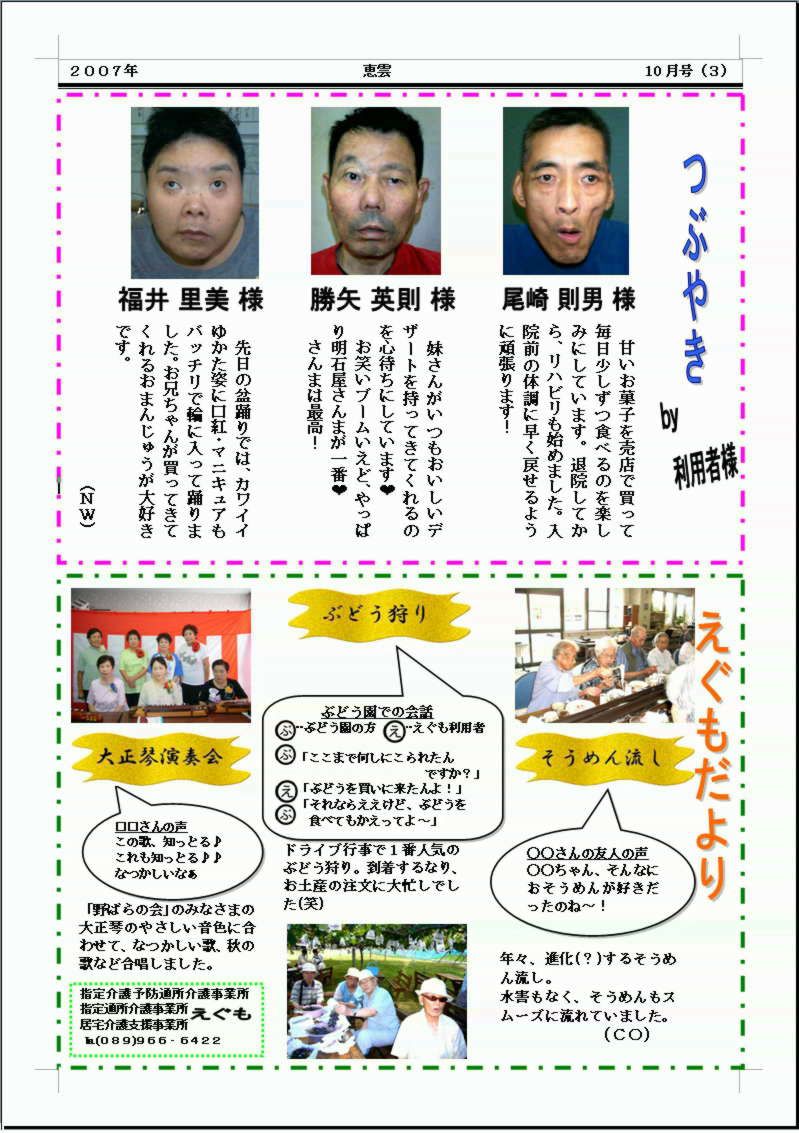 ２００７年
恵雲
10月号（３）
つぶやき
by
利用者様
尾崎 則男 様
甘いお菓子を売店で買って
毎日少しずつ食べるのを楽し
みにしています。退院してか
ら、リハビリも始めました。入
院前の体調に早く戻せるよう
に頑張ります！
勝矢 英則 様
妹さんがいつもおいしいデ
ザートを持ってきてくれるの
を心待ちにしています♥
お笑いブームいえど、やっぱ
り明石屋さんまが一番♥
さんまは最高！
福井 里美 様
先日の盆踊りでは、カワイイ
ゆかた姿に口紅・マニキュアも
バッチリで輪に入って踊りま
した。お兄ちゃんが買ってきて
くれるおまんじゅうが大好き
です。
（ＮＷ）
えぐもだより
大正琴演奏会
ロロさんの声
この歌、知っとる♪
これも知っとる♪♪
なつかしいなぁ
「野ばらの会」のみなさまの
大正琴のやさしい音色に合
わせて、なつかしい歌、秋の
歌など合唱しました。
指定介護予防通所介護事業所
指定通所介護事業所
居宅介護支援事業所
えぐも
℡(０８９)９６６‐５４２２
ぶどう狩り
ぶどう園での会話
ぶ…ぶどう園の方 え…えぐも利用者
ぶ「ここまで何しにこられたん
ですか？」
え「ぶどうを買いに来たんよ！」
ぶ「それならええけど、ぶどうを
食べてもかえってよ～」
ドライブ行事で１番人気の
ぶどう狩り。到着するなり、
お土産の注文に大忙しでし
た(笑)
そうめん流し
〇〇さんの友人の声
〇〇ちゃん、そんなに
おそうめんが好きだ
ったのね～！
年々、進化(？)するそうめ
ん流し。
水害もなく、そうめんもス
ムーズに流れていました。
（ＣＯ）